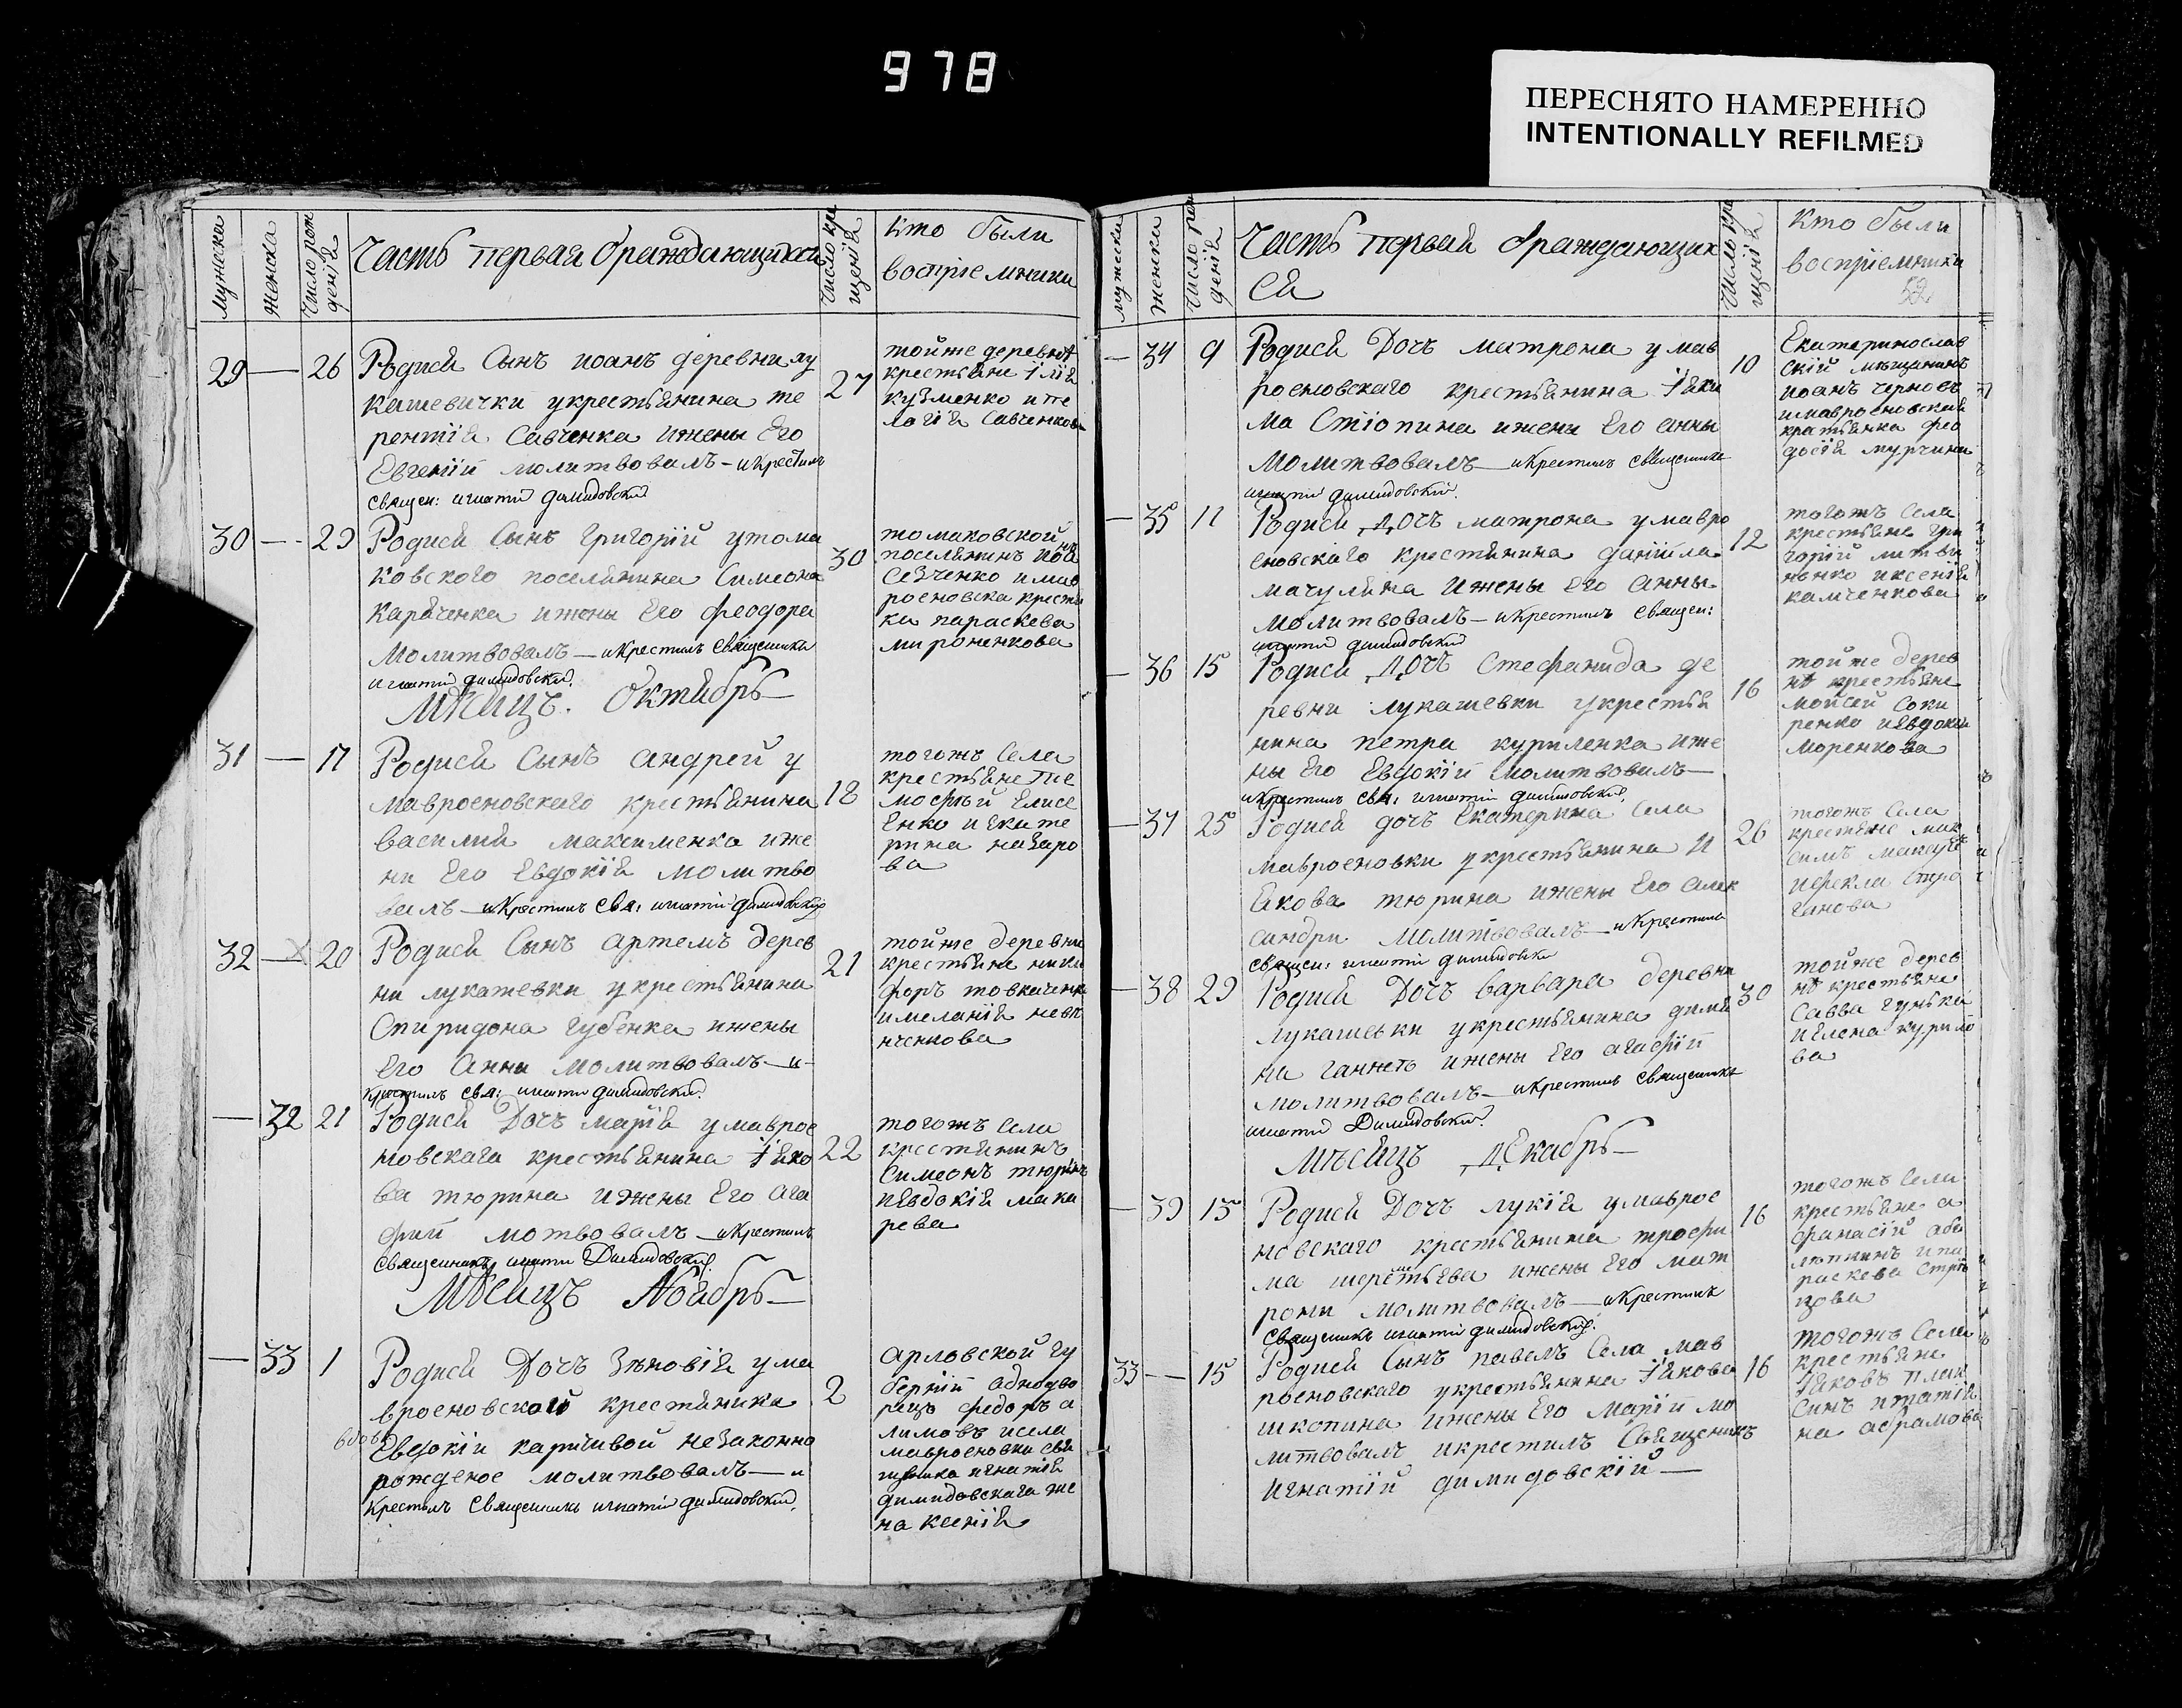 978
ПЕРЕСНЯТО НАМЕРЕННО
INTENTIONALLY REFILMED
мужеска
женска
Число рож
денія
Часть первая ораждающихся
Число кре
щенія
кто были
воспріемники
29 — 26 Родися Сынъ иоанъ деревни лу
кашевички укрестьянина те
рентія Савченка ижены Его
Евгеніи молитвовалъ — икрестилъ
священ: игнатій димидовскій
27
тойже деревнѣ
крестьяне Iлія
кузменко ипе
лагія Савченкова
30 — 29 Родися Сынъ Григорій утома
ковского поселянина Симеона
карАченка ижены Его феодора
Молитвовалъ — икрестилъ Священикъ
игнатій димидовскій
30
томаковской
поселянинъ
имав
роеновска крестя
ка параскева
мироненкова
Мѣсяцъ. Октябрь —
31 — 17 Родися Сынъ андрей у
мавроеновскаго крестьянина
василия максименка иже
ни Его Евдокія молитво
валъ — икрестилъ свя: игнатій димидовскій
18
тогожъ Села
крестьяне тие
мофей Елисе
Енко иекате
рина назаро
ва
32 — 20 Родися Сынъ артемъ дерев
ни лукашевки укрестьянина
Спиридона Губенка ижены
Его Анни молитвовалъ — и
крестилъ свя: игнатій димидовскій
21
тойже деревни
крестьяне ники
форъ товкаченко
имеланія
нченкова
— 32 21 Родися Дочъ марія умаврое
новскага крестьянина Iяко
ва тюрина ижены Его ага
фии мотвовалъ — икрестилъ
Священикъ игнатій Димидовскій
22
тогожъ Села
крестянинъ
Симеонъ тюринъ
иЕвдокія мака
рева
Мѣсяцъ Ноябрь —
— 33 1 Родися Дочъ Зѣновія ума
вроеновской крестянки
вдовы
Евдокіи карпивой незаконно
рожденое молитвовалъ — и
крестилъ Священикъ игнатій димидовскій
2
арловской гу
берніи аднодво
рецъ федоръ а
лимовъ исела
мавроеновки свя
щеника игнатія
димидовскага же
на ксенія
мужески
женска
Число рож
денія
Часть первая ораждающих
ся
Число кре
щенія
кто были
воспріемники
52
— 34 9 Родися Дочъ матрона умав
роеновскаго крестьянина Iяки
ма Стіопина ижены Его анны
Молитвовалъ — икрестилъ священикъ
игнатій димидовскій
10
Екатеринослав
скій мѣщанинъ
иоанъ черновъ
имавроеновская
кратянка фео
досія мурчина
— 35 11 Родися Дочъ матрона умавро
еновскаго крестянина даніила
мачулина ижены Его Анны
молитвовалъ — икрестилъ священ:
игнатій димидовскій
12
тогожъ Села
крестьяне гри
горій литви
ненко иксенія
камченкова
— 36 15 Родися Дочъ Стефанида де
ревни лукашевки укрестья
нина петра куриленка иже
ны Его Евдокіи молитвовалъ —
икрестилъ свя: игнатій димидовскій
16
тойже дерев
нѣ крестьяне
мойсей Соки
ренко иевдокия
моренкова
— 37 25 Родися дочъ Екатерина Села
мавроеновки укрестьянина И
Екова тюрина ижены Его алек
сандри молитвовалъ — икрестилъ
священ: игнатій димидовскій
26
тогожъ Села
крестяне мак
симъ
ифекла
ганова
— 38 29 Родися Дочъ варвара деревни
лукашевки укрестьянина
ижены Его агафіи
молитвовалъ — икрестилъ Священикъ
игнатій Димидовскій
30
тойже дерев
нѣ крестьяне
Савва гунька
иелена курило
ва
Мѣсяцъ Декабрь —
— 39 15 Родися Дочъ лукія умаврое
новскаго крестьянина трофи
ма ижены Его мат
рони молитвовалъ — икрестилъ
Священикъ игнатій димидовскій
16
тогожъ Села
крестьяне а
фанасій
ипа
раскева
33 — 15 Родися Сынъ павелъ Села мав
роеновскаго укрестьянина Iякова
шкопина ижены Его маріи мо
литвовалъ икрестилъ Священикъ
игнатій димидовскій —
16
тогожъ Села
крестьяне
Iяковъ плак
синъ итатія
на абрамова